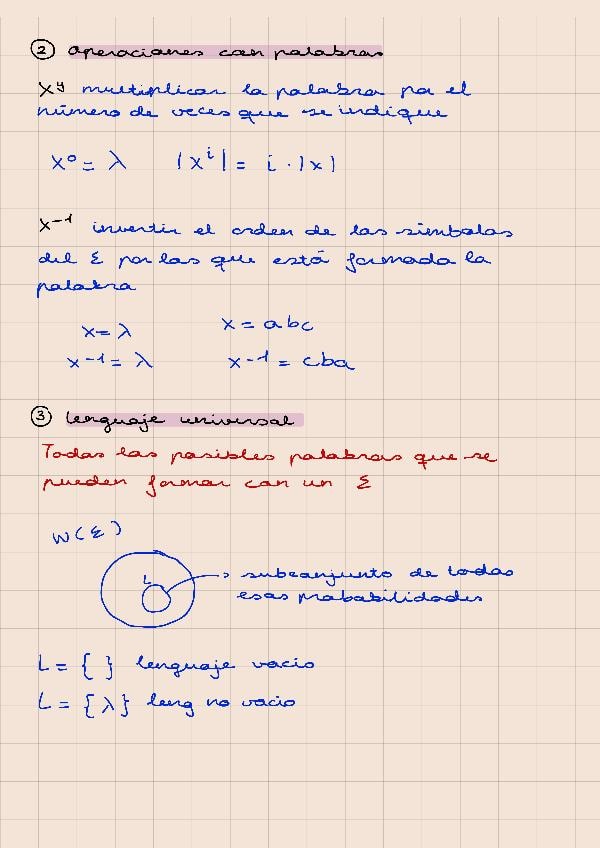 ② operaciones con palabras
xʸ multiplicar la palabra por el
número de veces que se indique
x⁰ = λ |xⁱ| = i · |x|
x⁻¹ invertir el orden de los símbolos
del Σ por los que está formada la
palabra
x = λ x = abc
x⁻¹ = λ x⁻¹ = cba
③ lenguaje universal
Todas las posibles palabras que se
pueden formar con un Σ
W(Σ)
L → subconjunto de todas
esas probabilidades
L = { } lenguaje vacío
L = {λ} leng no vacío